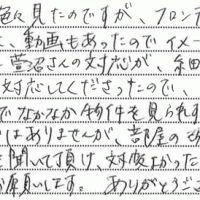 色に見たのですが、フロンテ
、動画もあったのでイメー
菅沼さんの対応が、細
対応してくださったので、
でなかなか物件を見られず
はありませんが、部屋の
を聞いて頂け、対応良かった
お願いします。ありがとうござ